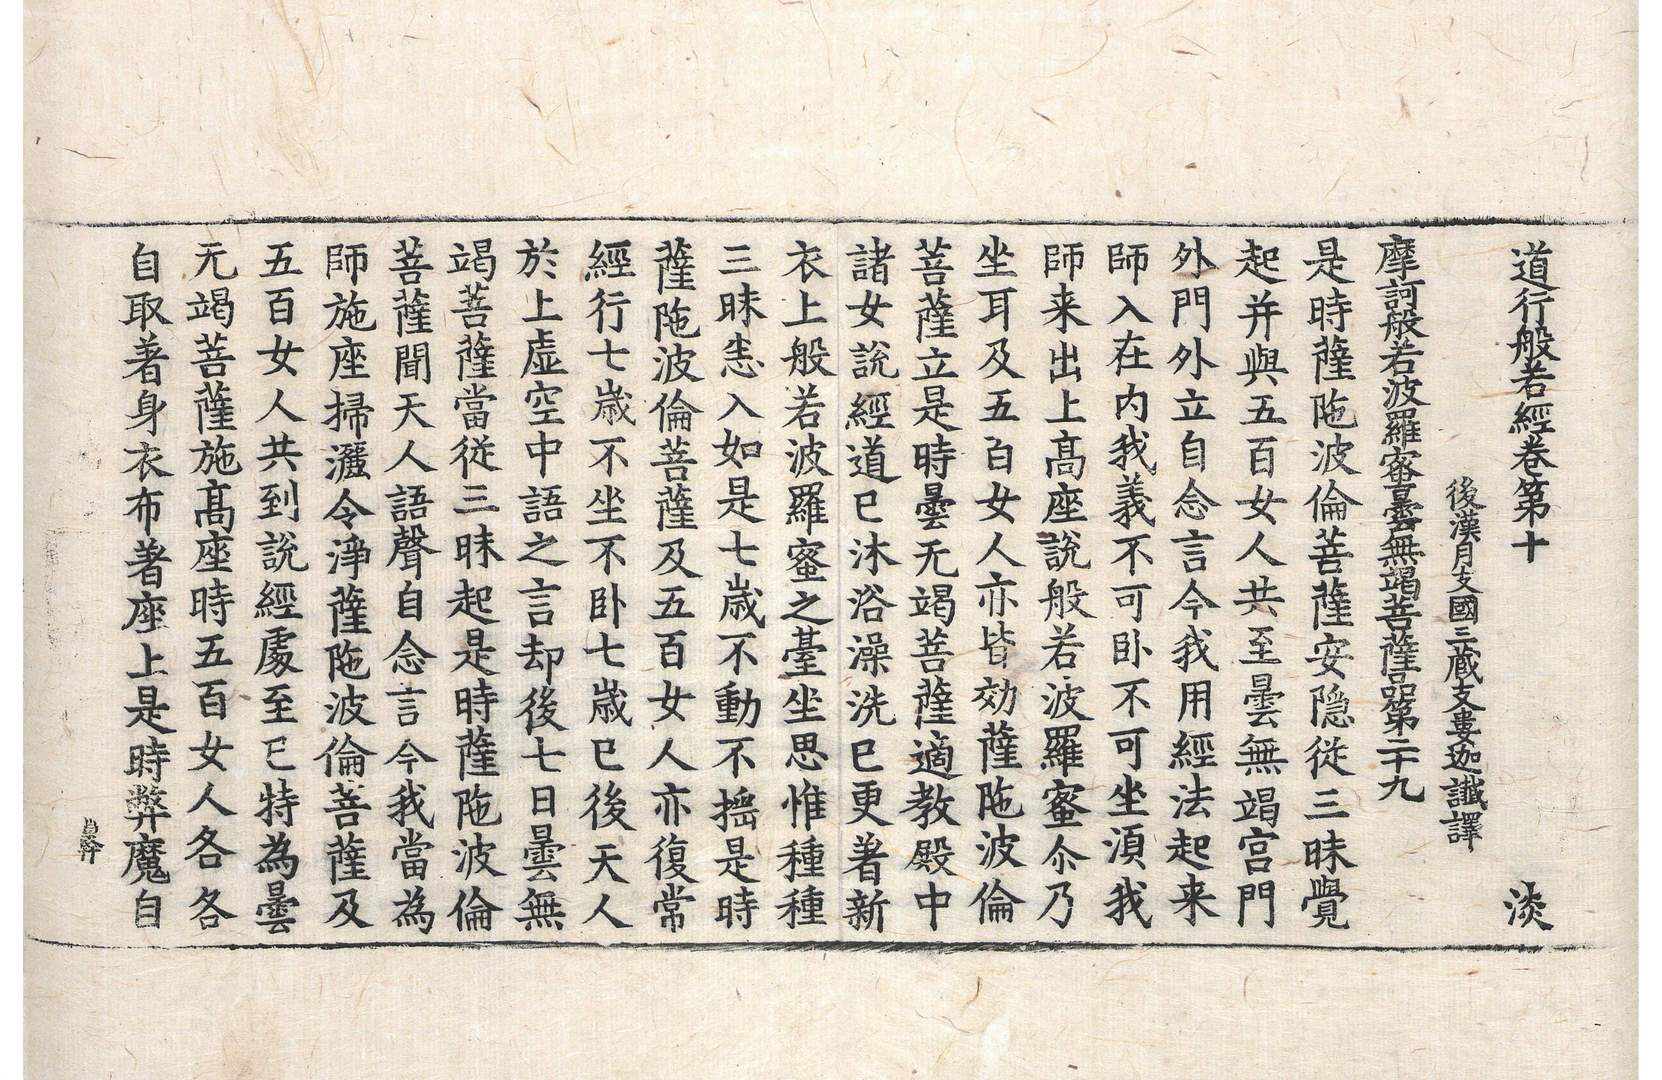 道行般若經卷第十 淡
後漢月支國三藏支婁迦讖譯
摩訶般若波羅蜜曇無竭菩薩品第二十九
是時薩陁波倫菩薩安隱従三昧覺
起并與五百女人共至曇無竭宫門
外門外立自念言今我用經法起来
師入在内我義不可卧不可坐湏我
師来出上髙座說般若波羅蜜尒乃
坐耳及五百女人亦皆効薩陁波倫
菩薩立是時曇无竭菩薩適教殿中
諸女說經道已沐浴澡洗已更著新
衣上般若波羅蜜之臺坐思惟種種
三昧悉入如是七歲不動不摇是時
薩陁波倫菩薩及五百女人亦復常
經行七歲不坐不卧七歲已後天人
於上虚空中語之言却後七日曇無
竭菩薩當従三昧起是時薩陁波倫
菩薩聞天人語聲自念言今我當為
師施座掃灑令淨薩陁波倫菩薩及
五百女人共到說經處至已特為曇
无竭菩薩施髙座時五百女人各各
自取著身衣布著座上是時弊魔自